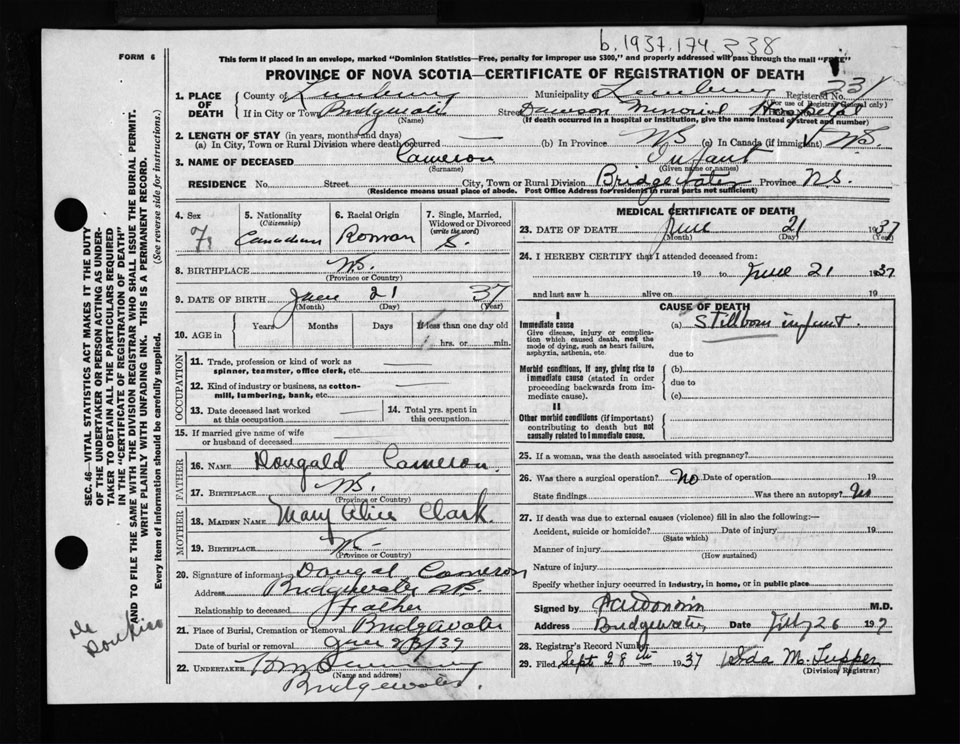 b. 1937.174.338
FORM 6
This form if placed in an envelope, marked "Dominion Statistics—Free, penalty for improper use $300," and properly addressed will pass through the mail "FREE"
PROVINCE OF NOVA SCOTIA—CERTIFICATE OF REGISTRATION OF DEATH
1. PLACE OF DEATH
County of Lunenburg Municipality Lunenburg Registered No.
(For use of Registrar General only)
If in City or Town Bridgewater Street Dawson Memorial Hospital
(Name) (If death occurred in a hospital or institution, give the name instead of street and number)
2. LENGTH OF STAY (in years, months and days)
(a) In City, Town or Rural Division where death occurred — (b) In Province NS (c) In Canada (if immigrant) NS.
3. NAME OF DECEASED Cameron Infant
(Surname) (Given name or names)
RESIDENCE No. Street City, Town or Rural Division Bridgewater Province N.S.
(Residence means usual place of abode. Post Office Address for residents in rural parts not sufficient)
4. Sex F. 5. Nationality (Citizenship) Canadian 6. Racial Origin 7. Single, Married, Widowed or Divorced (write the word) S.
8. BIRTHPLACE NS.
(Province or Country)
9. DATE OF BIRTH June 21 37
(Month) (Day) (Year)
10. AGE in Years Months Days If less than one day old
hrs. or min.
OCCUPATION
11. Trade, profession or kind of work as spinner, teamster, office clerk, etc. —
12. Kind of industry or business, as cotton-mill, lumbering, bank, etc. —
13. Date deceased last worked at this occupation — 14. Total yrs. spent in this occupation
15. If married give name of wife or husband of deceased —
FATHER
16. NAME Dougald Cameron.
17. BIRTHPLACE NS.
(Province or Country)
MOTHER
18. MAIDEN NAME Mary Alice Clark.
19. BIRTHPLACE NS
(Province or Country)
20. Signature of informant Dougal Cameron
Address Bridgewater NS.
Relationship to deceased Father
21. Place of Burial, Cremation or Removal Bridgewater
Date of burial or removal June
22. UNDERTAKER
(Name and address)
Bridgewater.
MEDICAL CERTIFICATE OF DEATH
23. DATE OF DEATH June 21 1937
(Month) (Day) (Year)
24. I HEREBY CERTIFY that I attended deceased from:
19 to June 21 1937
and last saw h alive on 19
CAUSE OF DEATH
I
Immediate cause (a) Stillborn infant.
Give disease, injury or complication which caused death, not the mode of dying, such as heart failure, asphyxia, asthenia, etc.
due to
Morbid conditions, if any, giving rise to immediate cause (stated in order proceeding backwards from immediate cause).
(b)
due to
(c)
II
Other morbid conditions (if important) contributing to death but not causally related to immediate cause.
25. If a woman, was the death associated with pregnancy?
26. Was there a surgical operation? No Date of operation 19
State findings Was there an autopsy? No
27. If death was due to external causes (violence) fill in also the following:—
Accident, suicide or homicide? Date of injury 19
(State which)
Manner of injury
(How sustained)
Nature of injury
Specify whether injury occurred in industry, in home, or in public place
Signed by M.D.
Address Bridgewater Date 26 19
28. Registrar's Record Number
29. Filed Sept 28th 1937 Ida M. Tupper
(Division Registrar)
SEC. 46—VITAL STATISTICS ACT MAKES IT THE DUTY
OF THE UNDERTAKER OR PERSON ACTING AS UNDER-
TAKER TO OBTAIN ALL THE PARTICULARS REQUIRED
IN THE "CERTIFICATE OF REGISTRATION OF DEATH"
AND TO FILE THE SAME WITH THE DIVISION REGISTRAR WHO SHALL ISSUE THE BURIAL PERMIT.
WRITE PLAINLY WITH UNFADING INK. THIS IS A PERMANENT RECORD.
Every item of information should be carefully supplied. (See reverse side for instructions.)